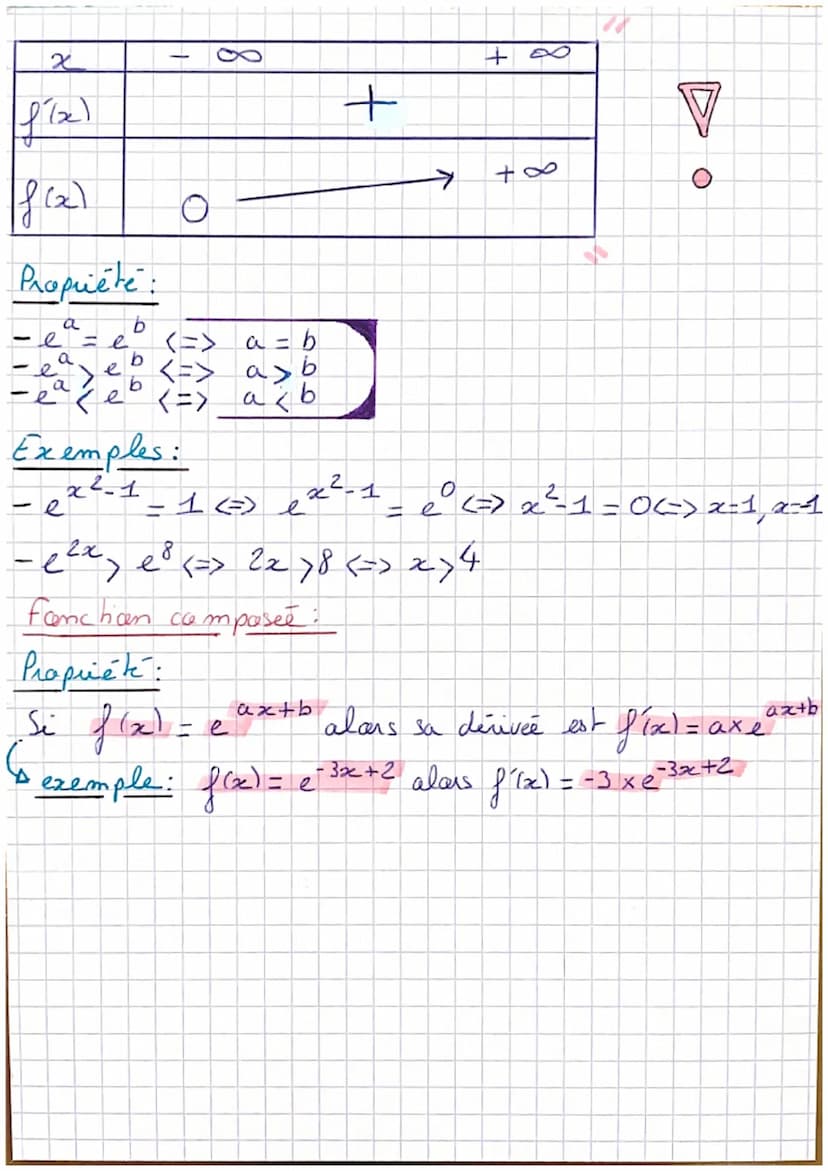 x - ∞ + ∞
f'(x) +
f(x) 0 → +∞
Propriété :
- e^a = e^b <=> a = b
- e^a > e^b <=> a > b
- e^a < e^b <=> a < b
Exemples :
- e^{x²-1} = 1 <=> e^{x²-1} = e^0 <=> x²-1 = 0 <=> x=1, x=-1
- e^{2x} > e^8 <=> 2x > 8 <=> x > 4
Fonction composeé :
Propriété :
Si f(x) = e^{ax+b} alors sa dériveé est f'(x) = a×e^{ax+b}
↳ exemple : f(x) = e^{-3x+2} alors f'(x) = -3 ×e^{-3x+2}